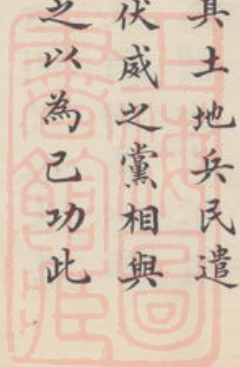 具土地兵民遣
伏威之黨相與
之以為己功此